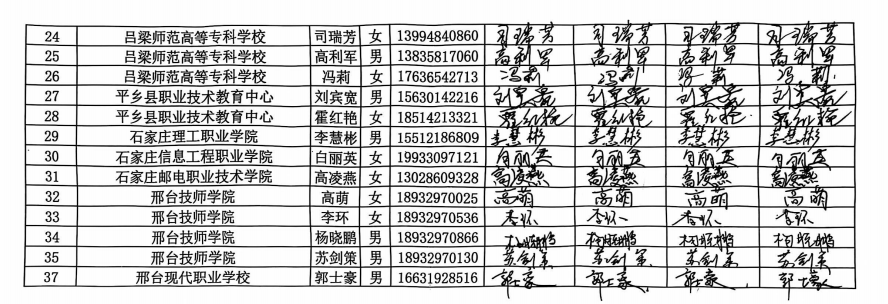 24 吕梁师范高等专科学校 司瑞芳 女 13994840860 司瑞芳 司瑞芳 司瑞芳 司瑞芳
25 吕梁师范高等专科学校 高利军 男 13835817060 高利军 高利军 高利军 高利军
26 吕梁师范高等专科学校 冯莉 女 17636542713 冯莉 冯莉 冯莉 冯莉
27 平乡县职业技术教育中心 刘宾宽 男 15630142216 刘宾宽 刘宾宽 刘宾宽 刘宾宽
28 平乡县职业技术教育中心 霍红艳 女 18514213321 霍红艳 霍红艳 霍红艳 霍红艳
29 石家庄理工职业学院 李慧彬 男 15512186809 李慧彬 李慧彬 李慧彬 李慧彬
30 石家庄信息工程职业学院 白丽英 女 19933097121 白丽英 白丽英 白丽英 白丽英
31 石家庄邮电职业技术学院 高凌燕 女 13028609328 高凌燕 高凌燕 高凌燕 高凌燕
32 邢台技师学院 高萌 女 18932970025 高萌 高萌 高萌 高萌
33 邢台技师学院 李环 女 18932970536 李环 李环 李环 李环
34 邢台技师学院 杨晓鹏 男 18932970866 杨晓鹏 杨晓鹏 杨晓鹏 杨晓鹏
35 邢台技师学院 苏剑策 男 18932970130 苏剑策 苏剑策 苏剑策 苏剑策
37 邢台现代职业学校 郭士豪 男 16631928516 郭士豪 郭士豪 郭士豪 郭士豪